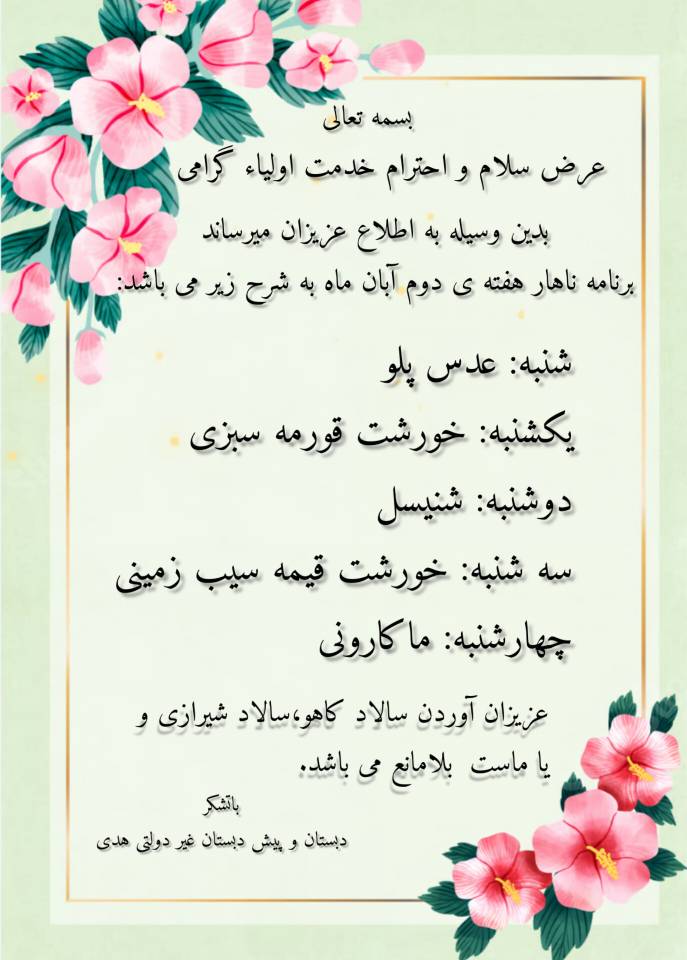 بسمه تعالی
عرض سلام و احترام خدمت اولیاء گرامی
بدین وسیله به اطلاع عزیزان میرساند
برنامه ناهار هفته ی دوم آبان ماه به شرح زیر می باشد:
شنبه: عدس پلو
یکشنبه: خورشت قورمه سبزی
دوشنبه: شنیسل
سه شنبه: خورشت قیمه سیب زمینی
چهارشنبه: ماکارونی
عزیزان آوردن سالاد کاهو،سالاد شیرازی و
یا ماست بلامانع می باشد.
باتشکر
دبستان و پیش دبستان غیر دولتی هدی